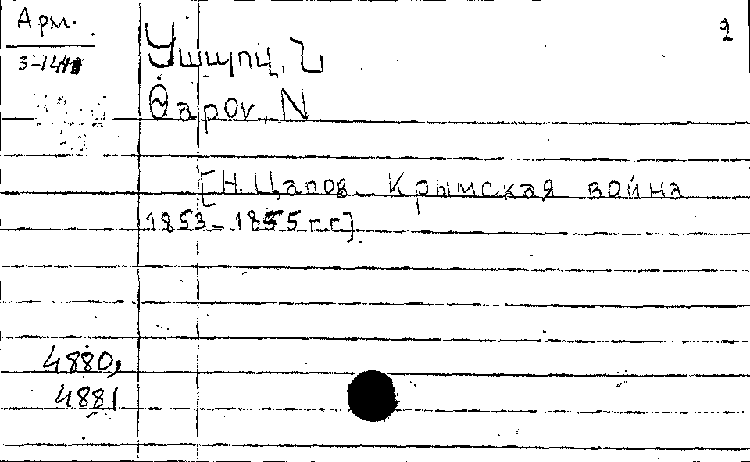 Арм. 2
3-1441
Ծապով, Ն
Θарov, N
[Н. Цапов. Крымская война
1853-1855 г.г.].
4880,
4881